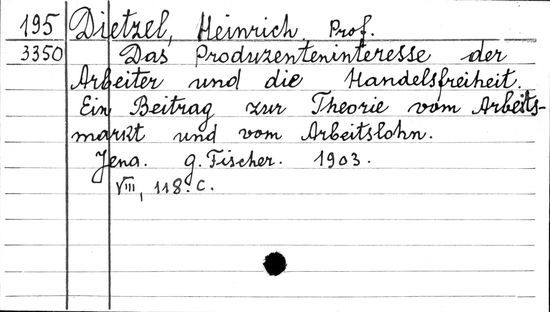 195 Dietzel, Heinrich, Prof.
3350 Das Produzenteninteresse der
Arbeiter und die Handelsfreiheit.
Ein Beitrag zur Theorie vom Arbeits-
markt und vom Arbeitslohn.
Jena. G. Fischer. 1903.
VIII, 118 c.